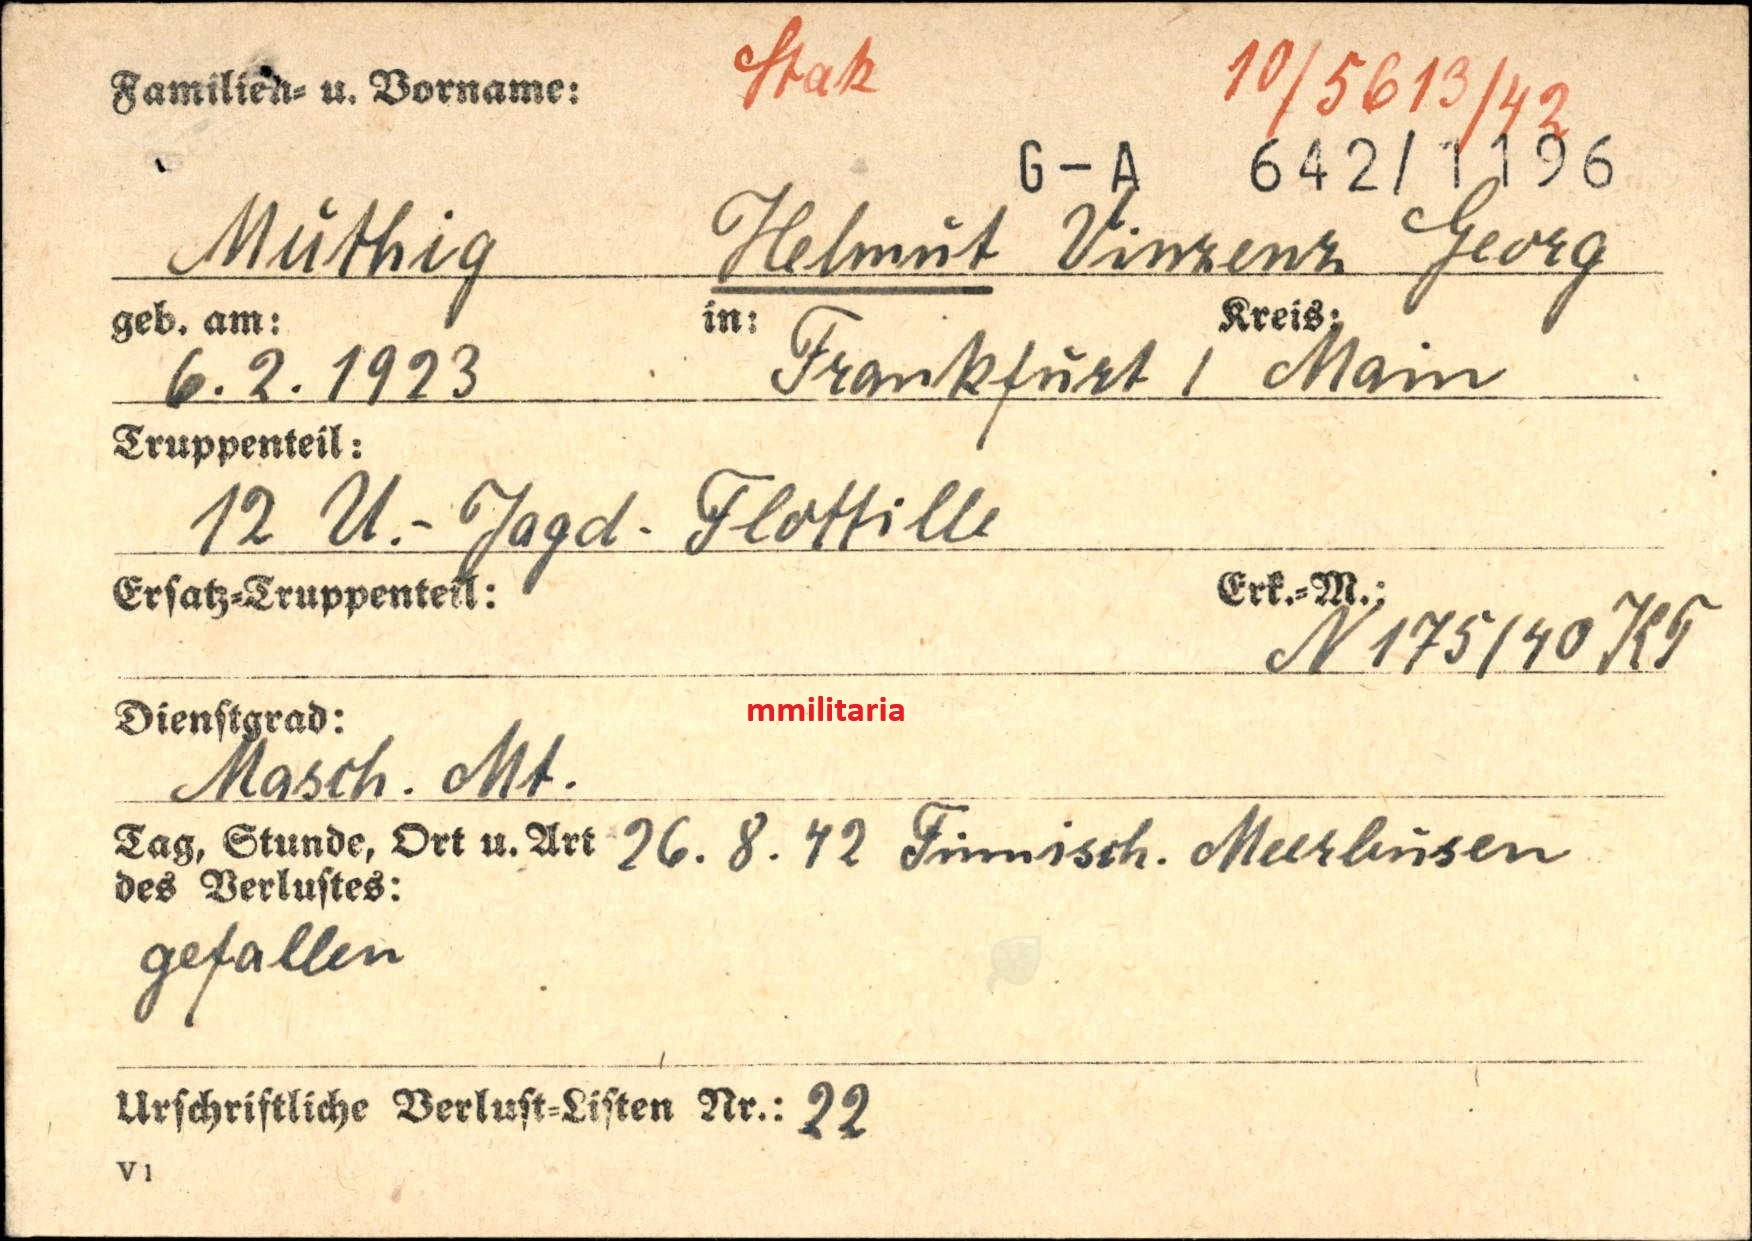 Familien- u. Vorname: Stak 10/5613/42
G-A 642/1196
Muthig Helmut Vinzenz Georg
geb. am: in: Kreis:
6.2.1923 Frankfurt / Main
Truppenteil:
12 U.-Jagd-Flottille
Ersatz-Truppenteil: Erk.-M.:
N 175/40 KT
Dienstgrad:
mmilitaria
Masch. Mt.
Tag, Stunde, Ort u. Art 26.8.42 Finnisch. Meerbusen
des Verlustes:
gefallen
Urschriftliche Verlust-Listen Nr.: 22
V 1